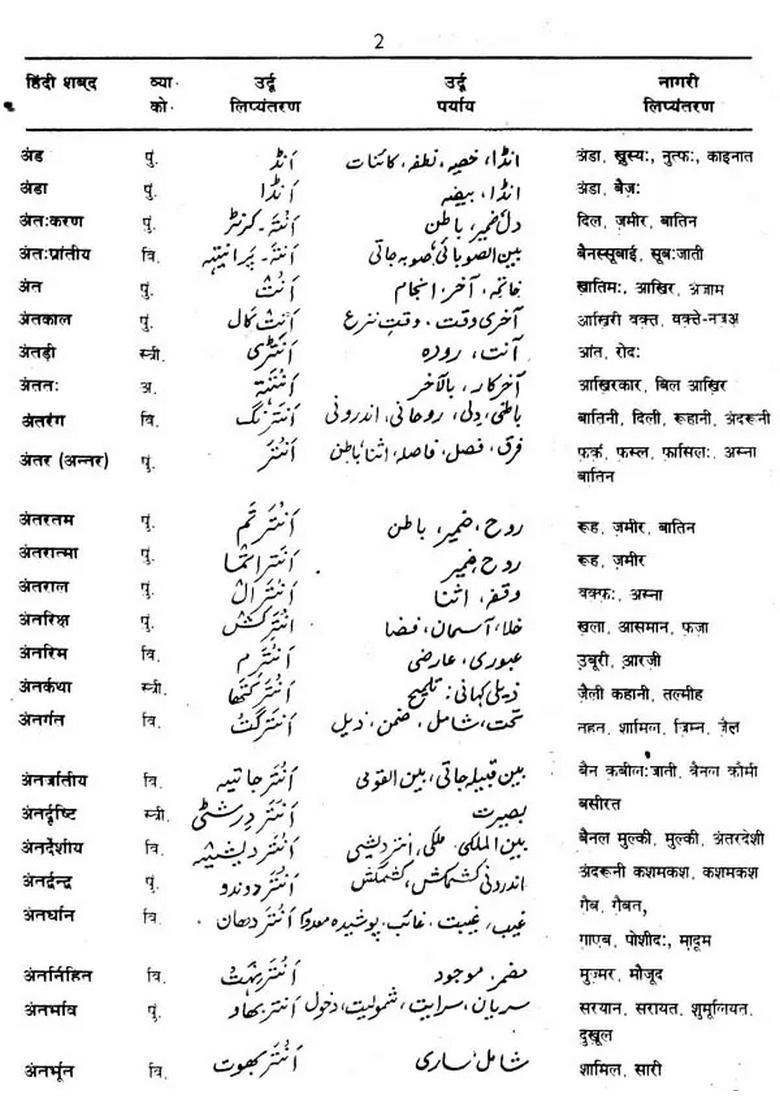 2
हिंदी शब्द व्या. उर्दू उर्दू नागरी
को. लिप्यंतरण पर्याय लिप्यंतरण
अंड पुं. اَنڈ انڈا، خصیہ، نطفہ، کائنات अंडा, ख़ुस्यः, नुत्फ़ः, काइनात
अंडा पुं. اَنڈا انڈا، بیضہ अंडा, बैज़ः
अंतःकरण पुं. دل، ضمیر، باطن दिल, ज़मीर, बातिन
अंतःप्रांतीय वि. بین الصوبائی، صوبہ جاتی बैनस्सूबाई, सूबःजाती
अंत पुं. اَنت خاتمہ، آخر، انجام ख़ातिमः, आख़िर, अंजाम
अंतकाल पुं. اَنت کال آخری وقت، وقتِ نزع आख़िरी वक़्त, वक़्ते-नज़अ
अंतड़ी स्त्री. اَنتڑی آنت، رودہ आंत, रोदः
अंततः अ. آخرکار، بالآخر आख़िरकार, बिल आख़िर
अंतरंग वि. اَنتَرَنگ باطنی، دلی، روحانی، اندرونی बातिनी, दिली, रूहानी, अंदरूनी
अंतर (अन्तर) पुं. اَنتَر فرق، فصل، فاصلہ، اثنا، باطن फ़र्क़, फ़स्ल, फ़ासिलः, अस्ना
बातिन
अंतरतम पुं. اَنتَرتَم روح، ضمیر، باطن रूह, ज़मीर, बातिन
अंतरात्मा पुं. اَنتَراتما روح، ضمیر रूह, ज़मीर
अंतराल पुं. اَنتَرال وقفہ، اثنا वक्फ़ः, अस्ना
अंतरिक्ष पुं. خلا، آسمان، فضا ख़ला, आसमान, फ़ज़ा
अंतरिम वि. اَنتَرِم عبوری، عارضی उ़बूरी, आ़रज़ी
अंतर्कथा स्त्री. اَنتَرکتھا ذیلی کہانی، تلمیح ज़ैली कहानी, तल्मीह
अंतर्गत वि. اَنتَرگت تحت، شامل، ضمن، ذیل तहत, शामिल, ज़िम्न, ज़ैल
अंतर्जातीय वि. اَنتَرجاتیہ بین قبیلہ جاتی، بین القومی बैन क़बीलःजाती, बैनल क़ौमी
अंतर्दृष्टि स्त्री. اَنتَر دِرشٹی بصیرت बसीरत
अंतर्देशीय वि. اَنتَر دیشیہ بین الملکی، ملکی، انتردیشی बैनल मुल्की, मुल्की, अंतरदेशी
अंतर्द्वन्द्व पुं. اَنتَر دوندو اندرونی کشمکش، کشمکش अंदरूनी कशमकश, कशमकश
अंतर्धान वि. اَنتَر دھان غیب، غیبت، غائب، پوشیدہ، معدوم ग़ैब, ग़ैबत,
ग़ाएब, पोशीदः, मादूम
अंतर्निहित वि. مضمر، موجود मुज़्मर, मौजूद
अंतर्भाव पुं. اَنتربھاو سریان، سرایت، شمولیت، دخول सरयान, सरायत, शुमूलियत,
दुख़ूल
अंतर्भूत वि. اَنتَربھوت شامل، ساری शामिल, सारी